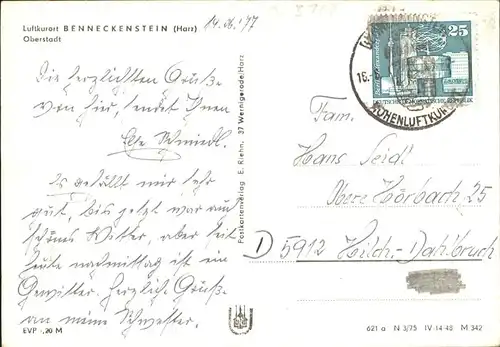 Luftkurort BENNECKENSTEIN (Harz)
Oberstadt
14.06.'77
Die herzlichsten Grüße
von hier, sendet Ihnen
Es gefällt mir sehr
gut, bis jetzt war auch
schönes Wetter, aber seit
heute nachmittag ist ein
Gewitter. Herzliche Grüße
an meine Schwester.
EVP -,20 M
Postkartenverlag E. Riehn, 37 Wernigerode/Harz
25
DEUTSCHE DEMOKRATISCHE REPUBLIK
16.
HÖHENLUFTKUR
Fam.
Hans Seidl
Obere Hörbach 25
D 5912 Hilch.-Dahlbruch
621 a N 3/75 IV-14-48 M 342